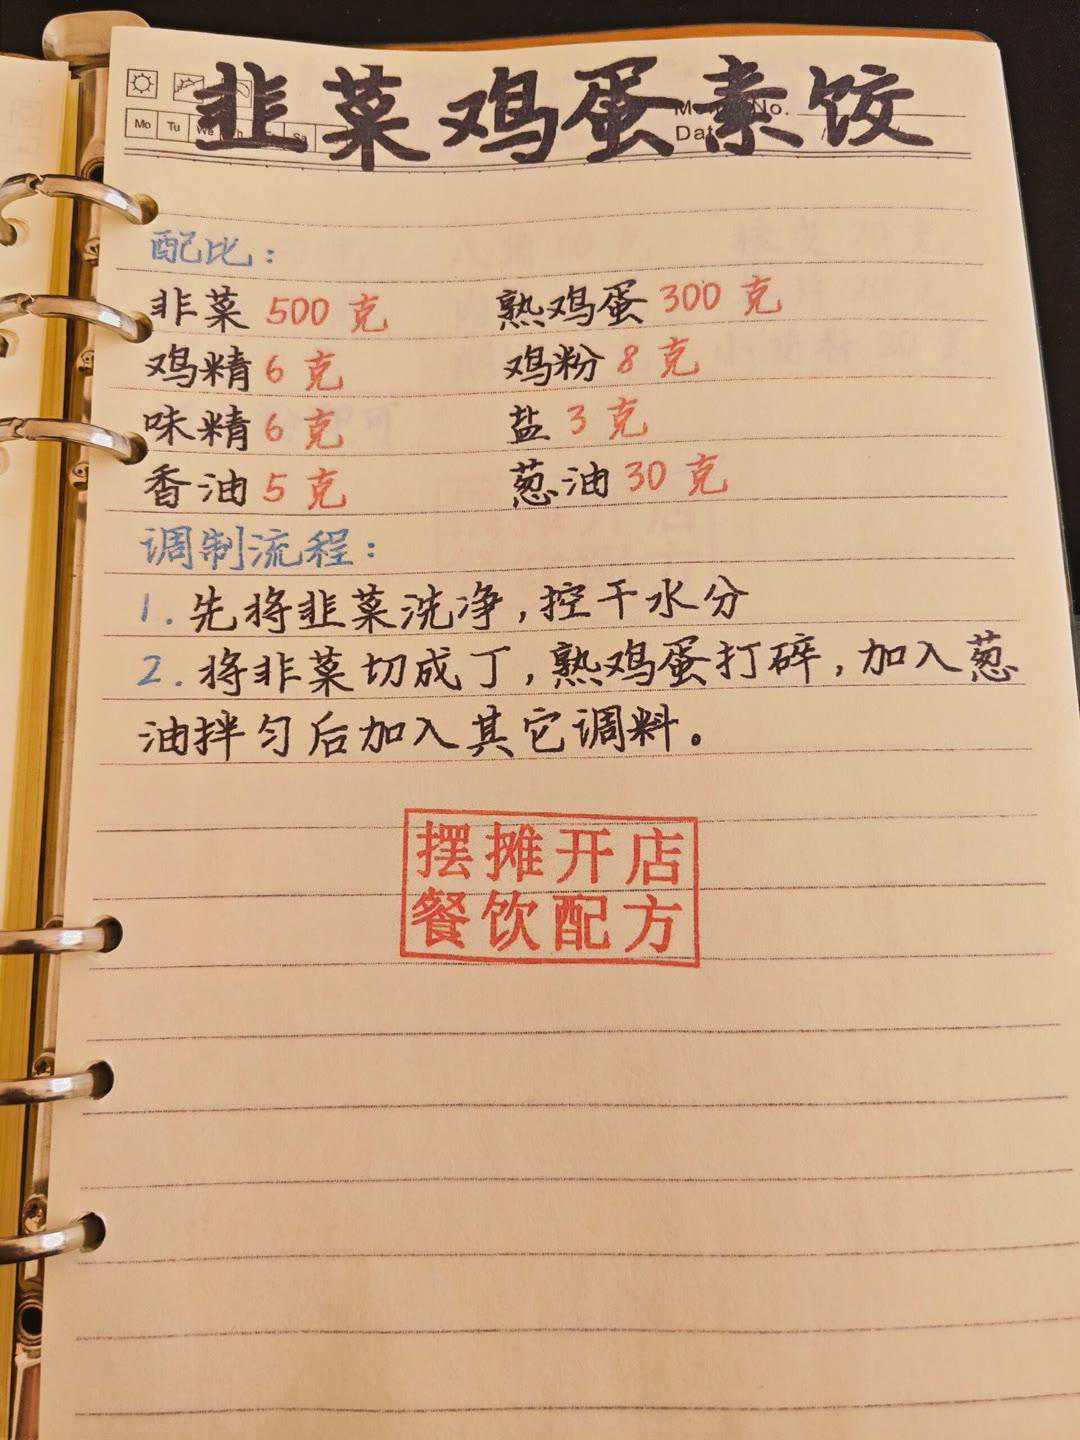 韭菜鸡蛋素饺
Mo Tu We Th Sa
Memo No.
Date /
配比：
韭菜 500 克 熟鸡蛋 300 克
鸡精 6 克 鸡粉 8 克
味精 6 克 盐 3 克
香油 5 克 葱油 30 克
调制流程：
1. 先将韭菜洗净，控干水分
2. 将韭菜切成丁，熟鸡蛋打碎，加入葱
油拌匀后加入其它调料。
摆摊开店
餐饮配方